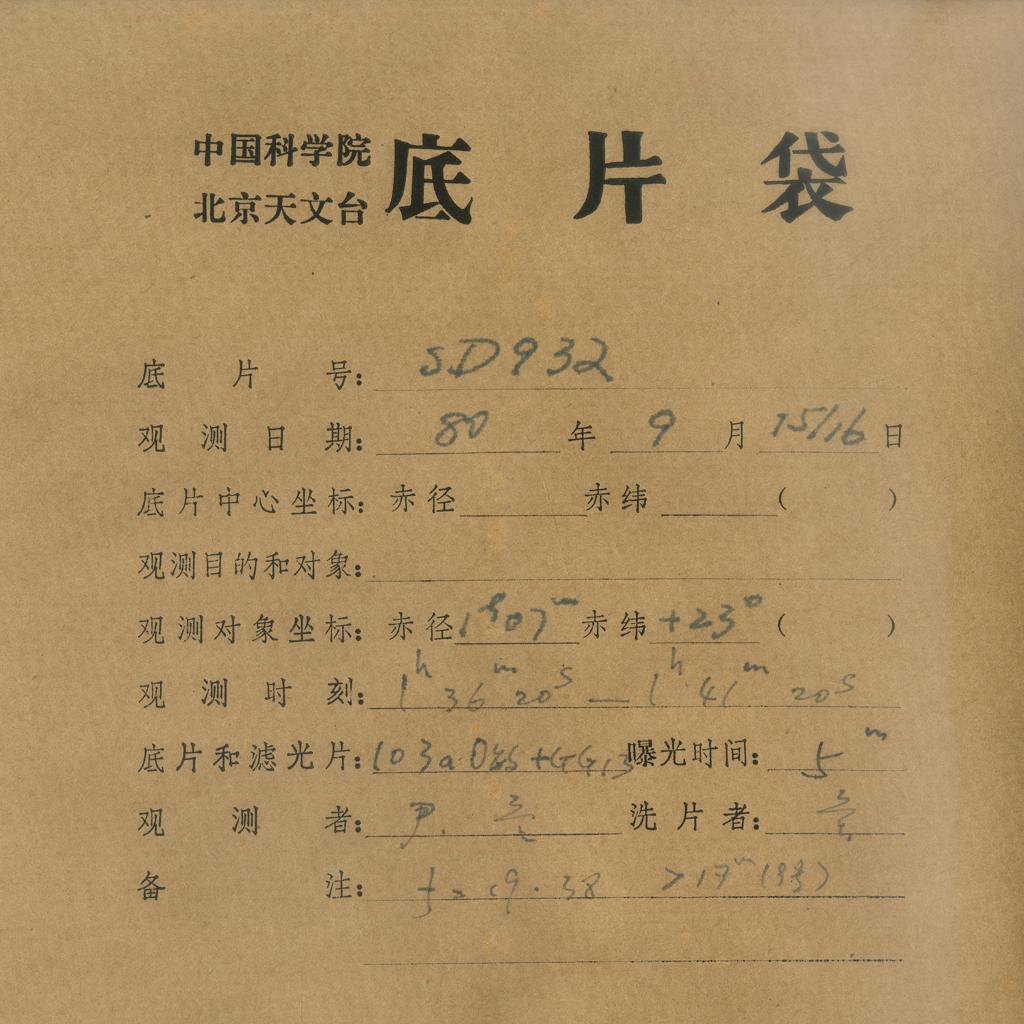 中国科学院
北京天文台
底片袋
底片号: SD932
观测日期: 80年 9月 15/16日
底片中心坐标: 赤径 赤纬 ( )
观测目的和对象:
观测对象坐标: 赤径 1h07m 赤纬 +23° ( )
观测时刻: 1h 36m 20s — 1h 41m 20s
底片和滤光片: 103aO +GG13 曝光时间: 5m
观测者: 洗片者:
备注: f = 19.38 >17m